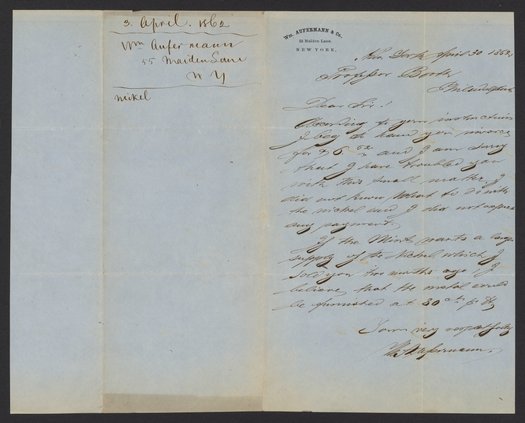 3. April. 1862
Wm Aufermann
55 Maiden Lane
N Y
nickel
WM. AUFERMANN & CO.
Maiden Lane,
NEW YORK.
New York April 30 1862
Professor Booth
Philadelphia
Dear Sir!
According to your instructions
I beg to hand you invoice
for $ 6 and I am sorry
that I have troubled you
with this small matter, I
did not know what to do with
the nickel and I did not expect
any payment.
If the Mint wants a large
supply of the Nickel which I
sold you two months ago I
believe, that the metal could
be furnished at 30 cts
Yours very respectfully
Wm Aufermann.